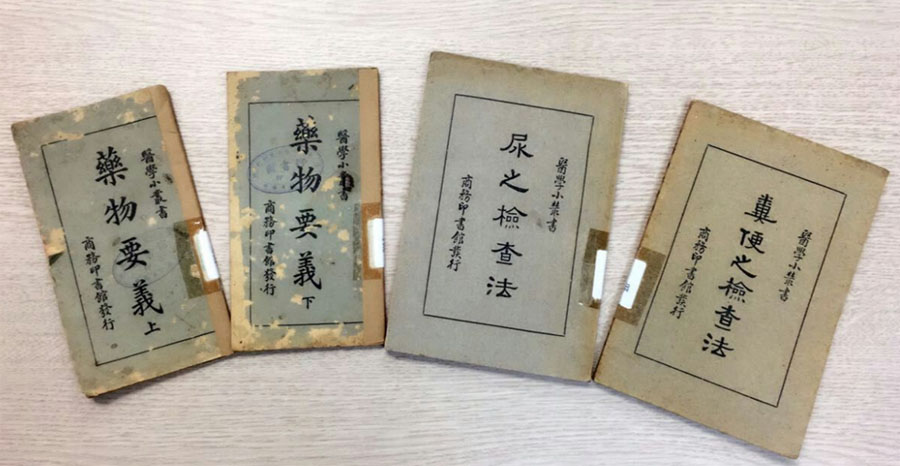 醫學小叢書
藥物要義 上
商務印書館發行
醫學小
書
藥物要義 下
商務印書館發行
醫學小叢書
尿之檢查法
商務印書館發行
醫學小叢書
糞便之檢查法
商務印書館發行